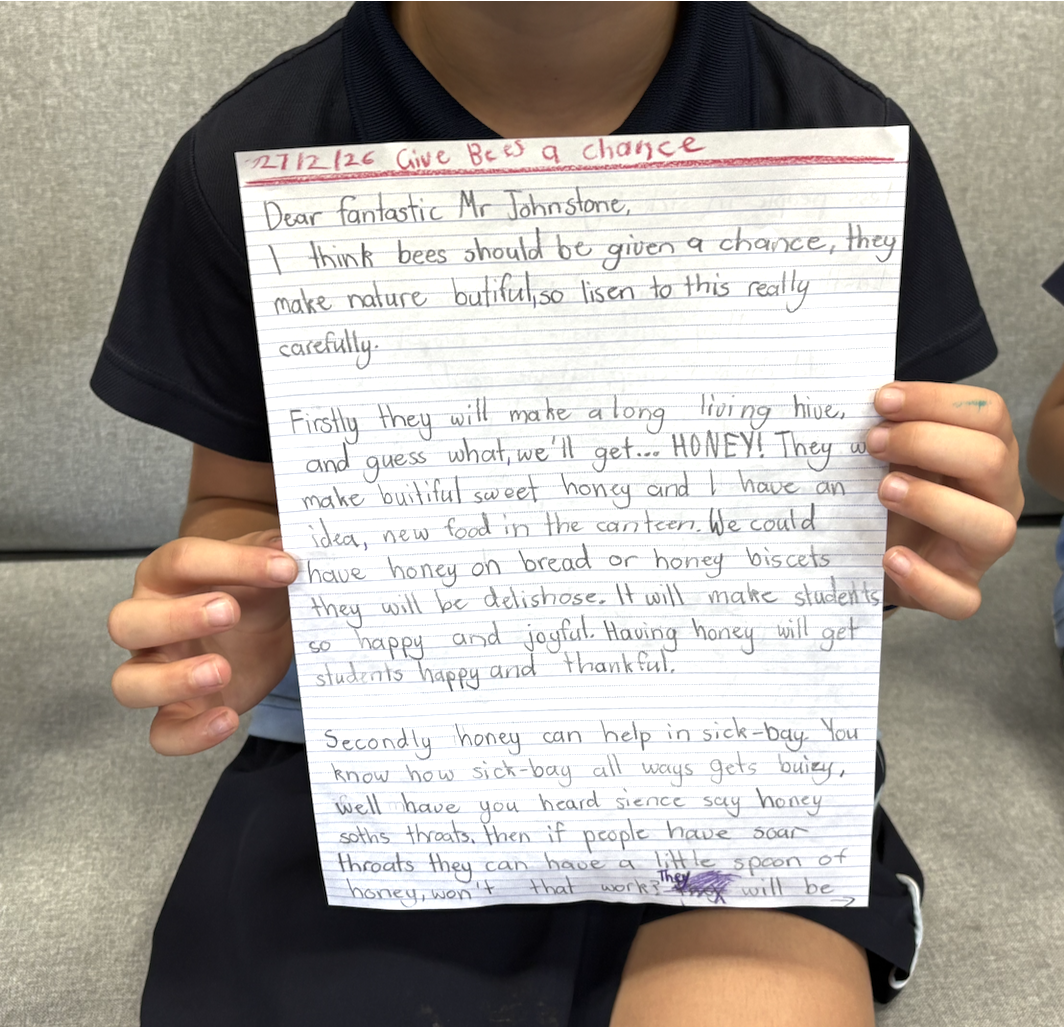 27/2/26 Give Bees a chance
Dear fantastic Mr Johnstone,
I think bees should be given a chance, they
make nature butiful, so lisen to this really
carefully.
Firstly they will make a long living hive,
and guess what, we'll get... HONEY! They w
make buitiful sweet honey and I have an
idea, new food in the canteen. We could
have honey on bread or honey biscets
they will be delishose. It will make students
so happy and joyful. Having honey will get
students happy and thankful.
Secondly honey can help in sick-bay. You
know how sick-bay all ways gets buizy,
well have you heard sience say honey
soths throats. then if people have soar
throats they can have a little spoon of
honey, won't that work? They will be →